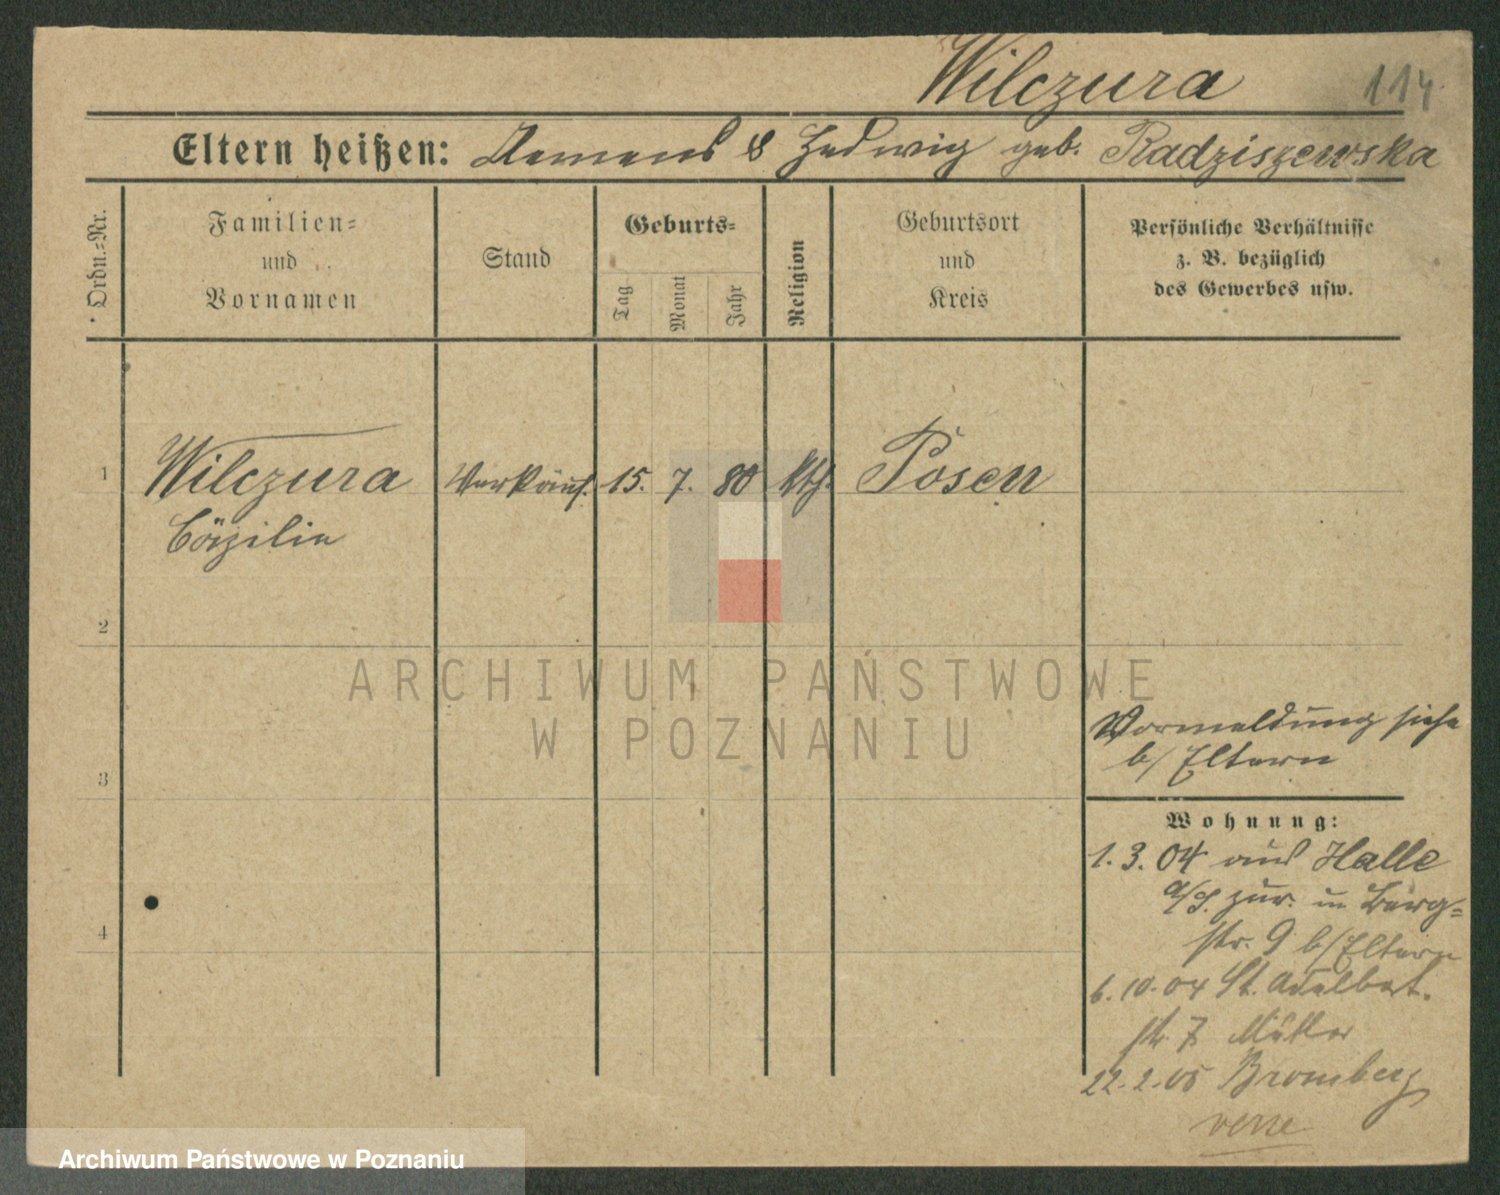 Wilczura 114
Eltern heißen: Klemens & Hedwig geb. Radziszewska
Ordn.=Nr.
Familien=
und
Vornamen
Stand
Geburts=
Tag
Monat
Jahr
Religion
Geburtsort
und
Kreis
Persönliche Verhältnisse
z. B. bezüglich
des Gewerbes usw.
1 Wilczura Verkäuf. 15. 7. 80 kth. Posen
Cäzilie
2
ARCHIWUM PAŃSTWOWE
W POZNANIU
Vormeldung siehe
b/ Eltern
3
Wohnung:
1. 3. 04 aus Halle
a/S. zur. in Berg=
str. 9 b/Eltern
4
6. 10. 04 St. Adalbert.
str. 7 Mutter
22. 2. 05 Bromberg
Archiwum Państwowe w Poznaniu